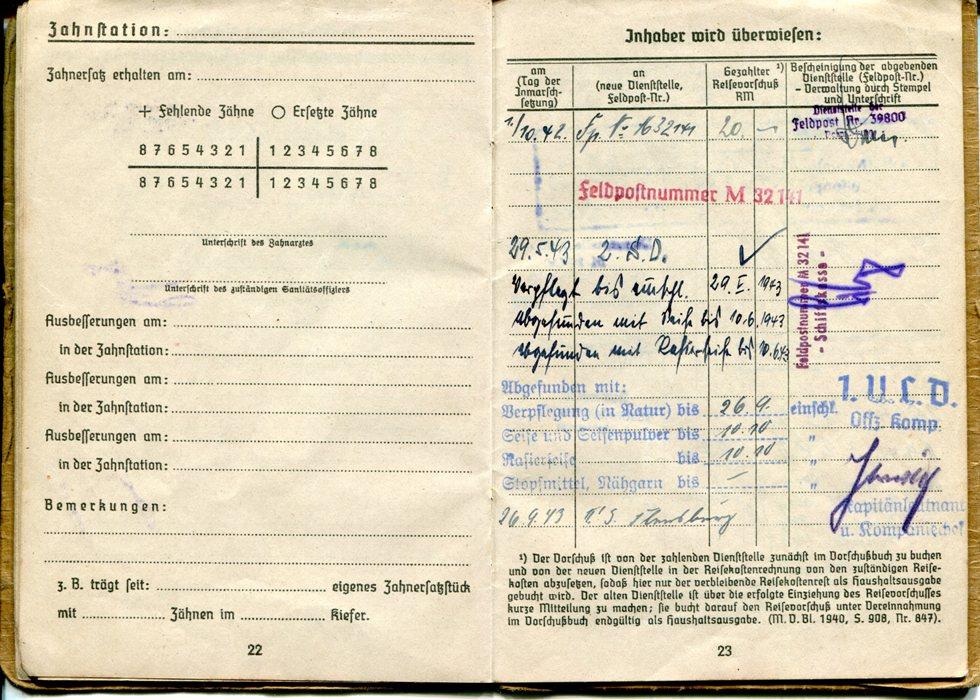 Zahnstation:
Zahnersatz erhalten am:
+ Fehlende Zähne ○ Ersetzte Zähne
8 7 6 5 4 3 2 1 | 1 2 3 4 5 6 7 8
8 7 6 5 4 3 2 1 | 1 2 3 4 5 6 7 8
Unterschrift des Zahnarztes
Unterschrift des zuständigen Sanitätsoffiziers
Ausbesserungen am:
in der Zahnstation:
Ausbesserungen am:
in der Zahnstation:
Ausbesserungen am:
in der Zahnstation:
Bemerkungen:
z. B. trägt seit: eigenes Zahnersatzstück
mit Zähnen im Kiefer.
22
Inhaber wird überwiesen:
am
(Tag der
Inmarsch-
setzung)
an
(neue Dienststelle,
Feldpost-Nr.)
Gezahlter ¹)
Reisevorschuß
RM
Bescheinigung der abgebenden
Dienststelle (Feldpost-Nr.)
- Verwaltung durch Stempel
und Unterschrift
Dienststelle der
Feldpost Nr. 39800
1./10.42. Fp. No M 32141 20. -
Feldpostnummer M 32141
29.5.43 2. S.D.
Feldpostnummer M 32141
- Schiffskasse -
Verpflegt bis einschl. 29. 5. 1943
abgefunden mit Seife bis 10.6.1943
abgefunden mit Rasierseife bis 10.6.43
Abgefunden mit:
Verpflegung (in Natur) bis 26.9. einschl.
Seife und Seifenpulver bis 10.10 "
Rasierseife bis 10.10 "
Stopfmittel, Nähgarn bis - "
1. U. L. D.
Offz Komp.
Kapitänleutnant
u. Kompaniechef
26.9.43 Flensburg
¹) Der Vorschuß ist von der zahlenden Dienststelle zunächst im Vorschußbuch zu buchen
und von der neuen Dienststelle in der Reisekostenrechnung von den zuständigen Reise-
kosten abzusetzen, sodaß hier nur der verbleibende Reisekostenrest als Haushaltsausgabe
gebucht wird. Der alten Dienststelle ist über die erfolgte Einziehung des Reisevorschusses
kurze Mitteilung zu machen; sie bucht darauf den Reisevorschuß unter Vereinnahmung
im Vorschußbuch endgültig als Haushaltsausgabe. (M. D. Bl. 1940, S. 908, Nr. 847).
23